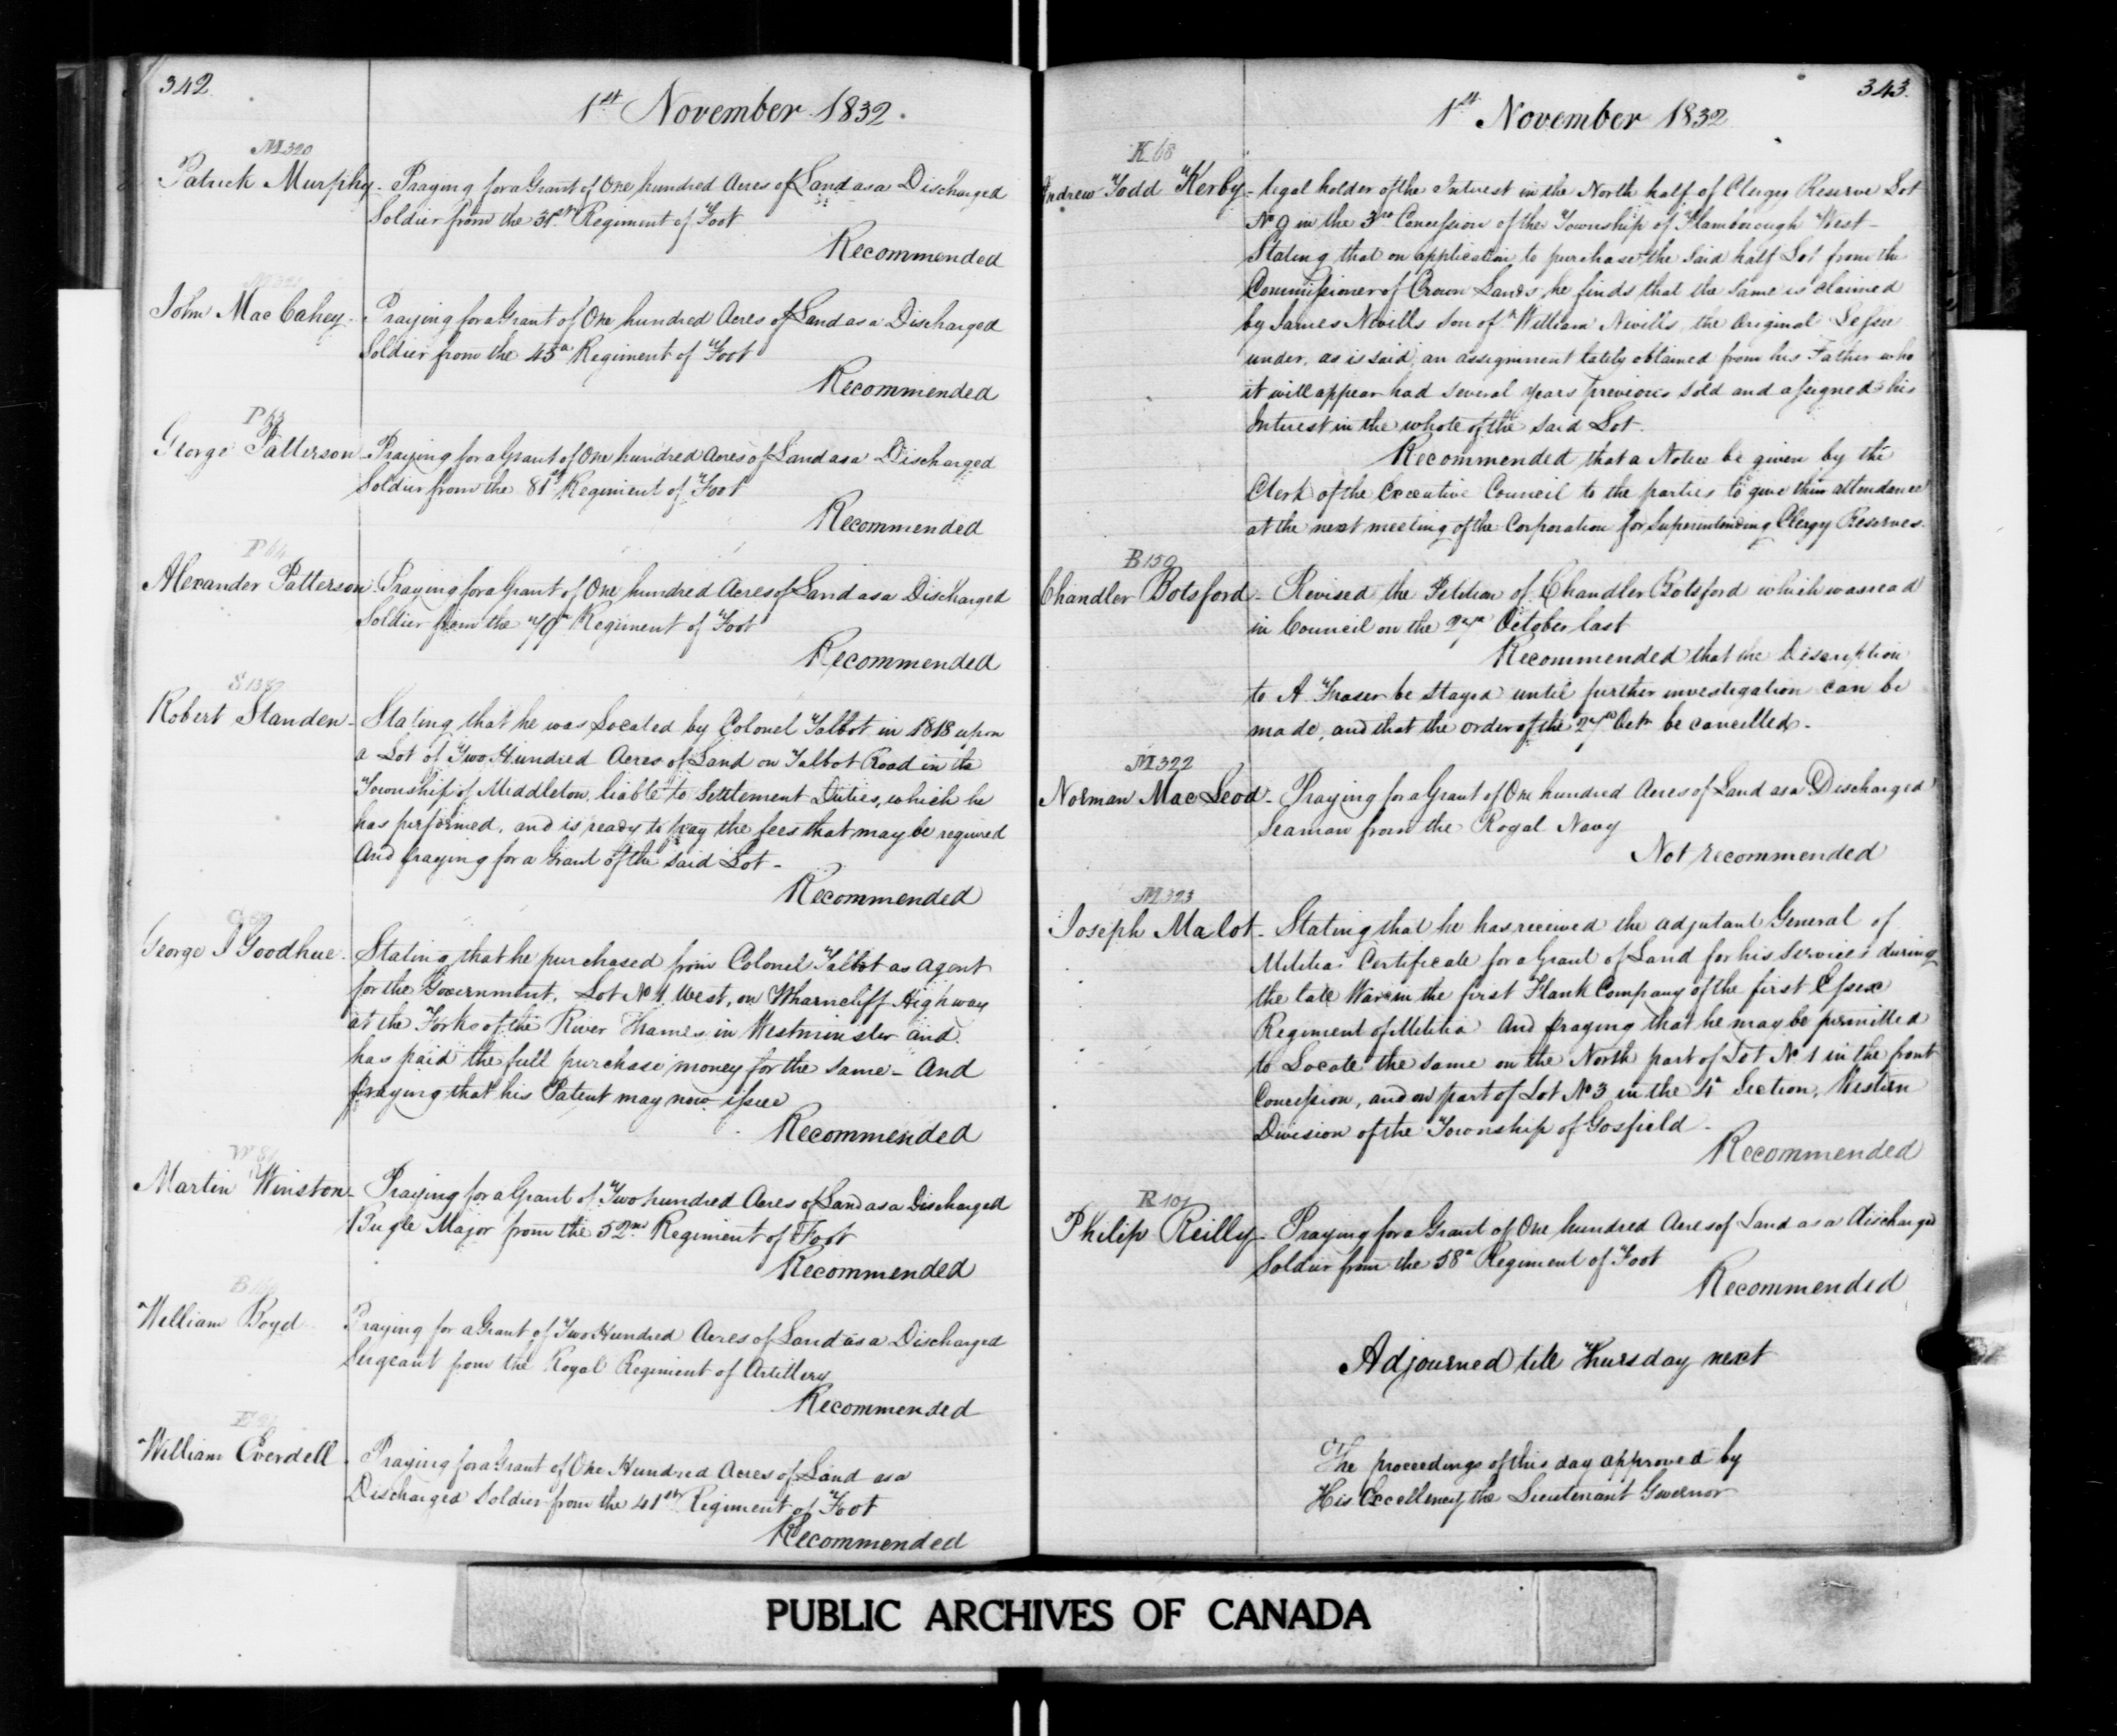 342
1st November 1832.
M320
Patrick Murphy - Praying for a Grant of One hundred Acres of Land as a Discharged
Soldier from the Regiment of Foot
Recommended
John Mac Cahey - Praying for a Grant of One hundred Acres of Land as a Discharged
Soldier from the 45th Regiment of Foot
Recommended
P63
George Patterson - Praying for a Grant of One hundred Acres of Land as a Discharged
Soldier from the 81st Regiment of Foot
Recommended
P64
Alexander Patterson - Praying for a Grant of One hundred Acres of Land as a Discharged
Soldier from the Regiment of Foot
Recommended
Robert Standen - Stating that he was Located by Colonel Talbot in 1818 upon
a Lot of Two Hundred Acres of Land on Talbot Road in the
Township of Middleton, liable to Settlement Duties, which he
has performed, and is ready to pay the fees that may be required
And praying for a Grant of the said Lot -
Recommended
George J Goodhue - Stating that he purchased from Colonel Talbot as agent
for the Government, Lot No 1. West, on Wharncliff Highway
at the Forks of the River Thames in Westminster and
has paid the full purchase money for the same - And
praying that his Patent may now issue
Recommended
Martin Winston - Praying for a Grant of Two hundred Acres of Land as a Discharged
Bugle Major from the 52nd Regiment of Foot
Recommended
William Boyd Praying for a Grant of Two Hundred Acres of Land as a Discharged
Sergeant from the Royal Regiment of Artillery
Recommended
William Everdell - Praying for a Grant of One Hundred Acres of Land as a
Discharged Soldier from the 41st Regiment of Foot
Recommended
343.
1st November 1832
K68
Andrew Todd Kerby - legal holder of the Interest in the North half of Clergy Reserve Lot
No 9 in the 3rd Concession of the Township of Flamborough West -
Stating that on application to purchase the said half Lot from the
Commissioner of Crown Lands, he finds that the same is claimed
by James Nevills Son of William Nevills, the Original Lessee
under, as is said, an assignment lately obtained from his Father who
it will appear had several years previous sold and assigned his
Interest in the whole of the said Lot.
Recommended that a Notice be given by the
Clerk of the Executive Council to the parties to give their attendance
at the next meeting of the Corporation for Superintending Clergy Reserves.
B150
Chandler Botsford - Revised the Petition of Chandler Botsford which was read
in Council on the 27th October last
Recommended that the Description
to A Fraser be stayed until further investigation can be
made, and that the order of the 27th Octr be cancelled.
M322
Norman Mac Leod - Praying for a Grant of One hundred Acres of Land as a Discharged
Seaman from the Royal Navy
Not recommended
M323
Joseph Malot - Stating that he has received the adjutant General of
Militia Certificate for a Grant of Land for his Services during
the late War in the first Flank Company of the first Essex
Regiment of Militia And praying that he may be permitted
to Locate the same on the North part of Lot No 1 in the front
Concession, and on part of Lot No 3 in the 4th Section, Western
Division of the Township of Gosfield -
Recommended
R101
Philip Reilly - Praying for a Grant of One hundred Acres of Land as a discharged
Soldier from the 58th Regiment of Foot
Recommended
Adjourned till Thursday next
The proceedings of this day approved by
His Excellency the Lieutenant Governor
PUBLIC ARCHIVES OF CANADA